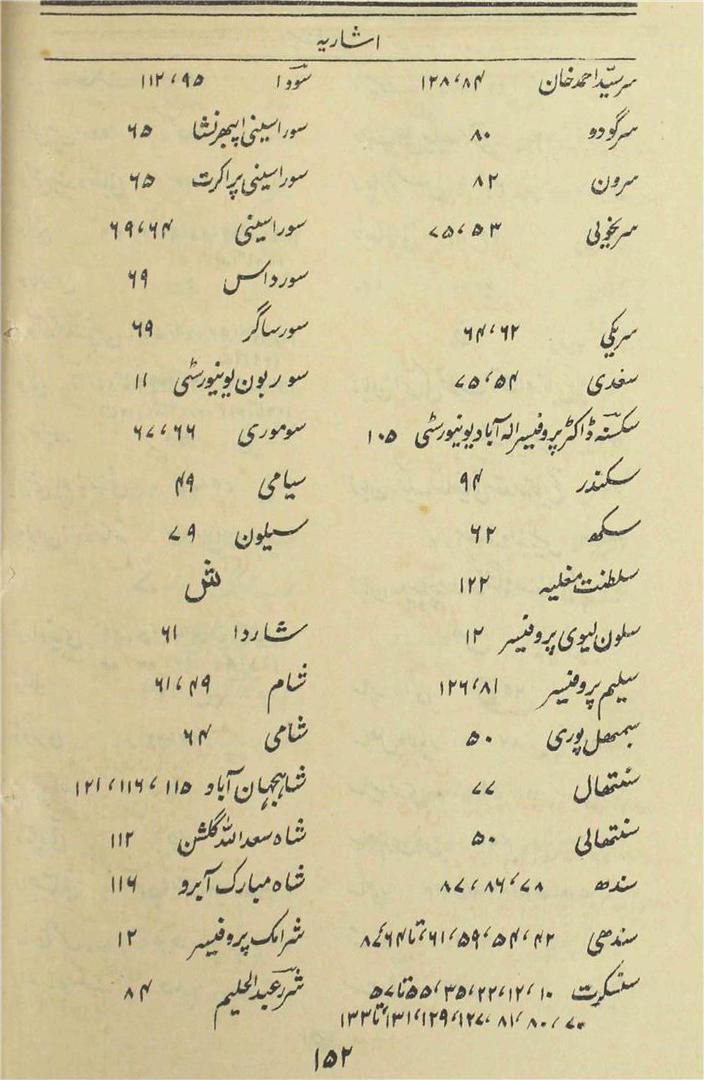 اشاریہ
سرسیّد احمد خان ۸۴، ۱۲۸
سرگودو ۸۰
سرون ۸۲
سریخوبی ۵۳، ۷۵
سریکی ۶۲، ۶۴
سغدی ۵۴، ۷۵
سکسنہ ڈاکٹر پروفیسر الہ آباد یونیورسٹی ۱۰۵
سکندر ۹۴
سکھ ۶۲
سلطنت مغلیہ ۱۲۲
سلون لیوی پروفیسر ۱۲
سلیم پروفیسر ۸۱، ۱۲۶
سمبھل پوری ۵۰
سنتھال ۷۷
سنتھالی ۵۰
سندھ ۷۸، ۸۶، ۸۷
سندھی ۴۲، ۵۴، ۵۹، ۶۱، تا ۶۴، ۸۷
سنسکرت ۱۰، ۱۲، ۲۲، ۳۵، ۵۵ تا ۵۷
۷۰، ۸۰، ۸۱، ۱۲۷، ۱۲۹، ۱۳۱، تا ۱۳۳
سودا ۹۵، ۱۱۲
سوراسینی اپبھرنشا ۶۵
سوراسینی پراکرت ۶۵
سوراسینی ۶۴، ۶۹
سورداس ۶۹
سورساگر ۶۹
سوربون یونیورسٹی ۱۱
سوموری ۶۶، ۶۷
سیامی ۴۹
سیلون ۷۹
ش
شاردا ۶۱
شام ۴۹، ۶۱
شامی ۶۴
شاہجہان آباد ۱۱۵، ۱۱۶، ۱۲۱
شاہ سعد اللہ گلشن ۱۱۲
شاہ مبارک آبرو ۱۱۶
شرامک پروفیسر ۱۲
شرر عبدالحلیم ۸۴
۱۵۲